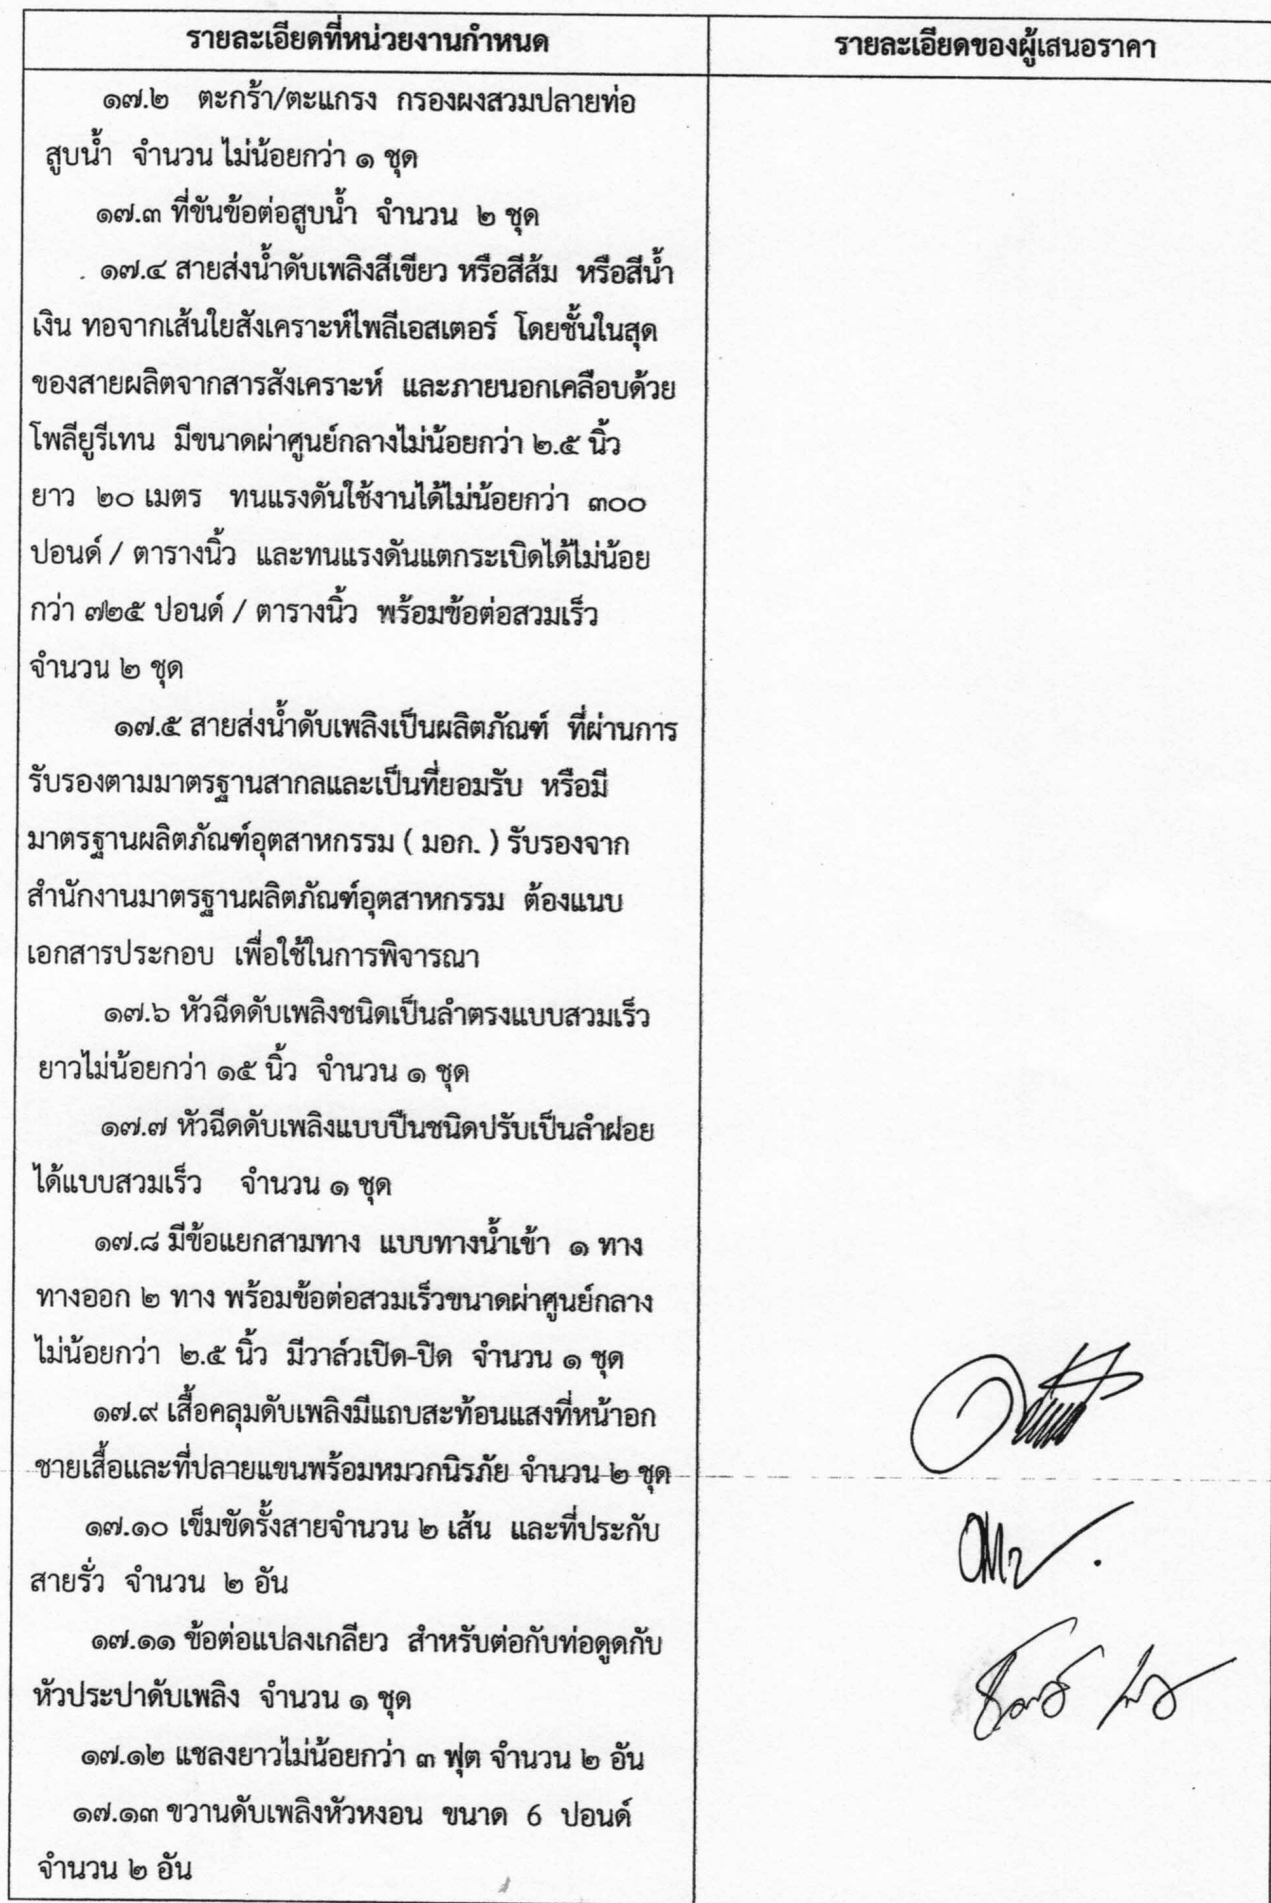 รายละเอียดที่หน่วยงานกำหนด
รายละเอียดของผู้เสนอราคา
๑๗.๒ ตะกร้า/ตะแกรง กรองผงสวมปลายท่อ
สูบน้ำ จำนวน ไม่น้อยกว่า ๑ ชุด
๑๗.๓ ที่ขันข้อต่อสูบน้ำ จำนวน ๒ ชุด
๑๗.๔ สายส่งน้ำดับเพลิงสีเขียว หรือสีส้ม หรือสีน้ำ
เงิน ทอจากเส้นใยสังเคราะห์ไพลีเอสเตอร์ โดยชั้นในสุด
ของสายผลิตจากสารสังเคราะห์ และภายนอกเคลือบด้วย
โพลียูรีเทน มีขนาดผ่าศูนย์กลางไม่น้อยกว่า ๒.๕ นิ้ว
ยาว ๒๐ เมตร ทนแรงดันใช้งานได้ไม่น้อยกว่า ๓๐๐
ปอนด์ / ตารางนิ้ว และทนแรงดันแตกระเบิดได้ไม่น้อย
กว่า ๗๒๕ ปอนด์ / ตารางนิ้ว พร้อมข้อต่อสวมเร็ว
จำนวน ๒ ชุด
๑๗.๕ สายส่งน้ำดับเพลิงเป็นผลิตภัณฑ์ ที่ผ่านการ
รับรองตามมาตรฐานสากลและเป็นที่ยอมรับ หรือมี
มาตรฐานผลิตภัณฑ์อุตสาหกรรม ( มอก. ) รับรองจาก
สำนักงานมาตรฐานผลิตภัณฑ์อุตสาหกรรม ต้องแนบ
เอกสารประกอบ เพื่อใช้ในการพิจารณา
๑๗.๖ หัวฉีดดับเพลิงชนิดเป็นลำตรงแบบสวมเร็ว
ยาวไม่น้อยกว่า ๑๕ นิ้ว จำนวน ๑ ชุด
๑๗.๗ หัวฉีดดับเพลิงแบบปืนชนิดปรับเป็นลำฝอย
ได้แบบสวมเร็ว จำนวน ๑ ชุด
๑๗.๘ มีข้อแยกสามทาง แบบทางน้ำเข้า ๑ ทาง
ทางออก ๒ ทาง พร้อมข้อต่อสวมเร็วขนาดผ่าศูนย์กลาง
ไม่น้อยกว่า ๒.๕ นิ้ว มีวาล์วเปิด-ปิด จำนวน ๑ ชุด
๑๗.๙ เสื้อคลุมดับเพลิงมีแถบสะท้อนแสงที่หน้าอก
ชายเสื้อและที่ปลายแขนพร้อมหมวกนิรภัย จำนวน ๒ ชุด
๑๗.๑๐ เข็มขัดรั้งสายจำนวน ๒ เส้น และที่ประกับ
สายรั่ว จำนวน ๒ อัน
๑๗.๑๑ ข้อต่อแปลงเกลียว สำหรับต่อกับท่อดูดกับ
หัวประปาดับเพลิง จำนวน ๑ ชุด
๑๗.๑๒ แชลงยาวไม่น้อยกว่า ๓ ฟุต จำนวน ๒ อัน
๑๗.๑๓ ขวานดับเพลิงหัวหงอน ขนาด 6 ปอนด์
จำนวน ๒ อัน